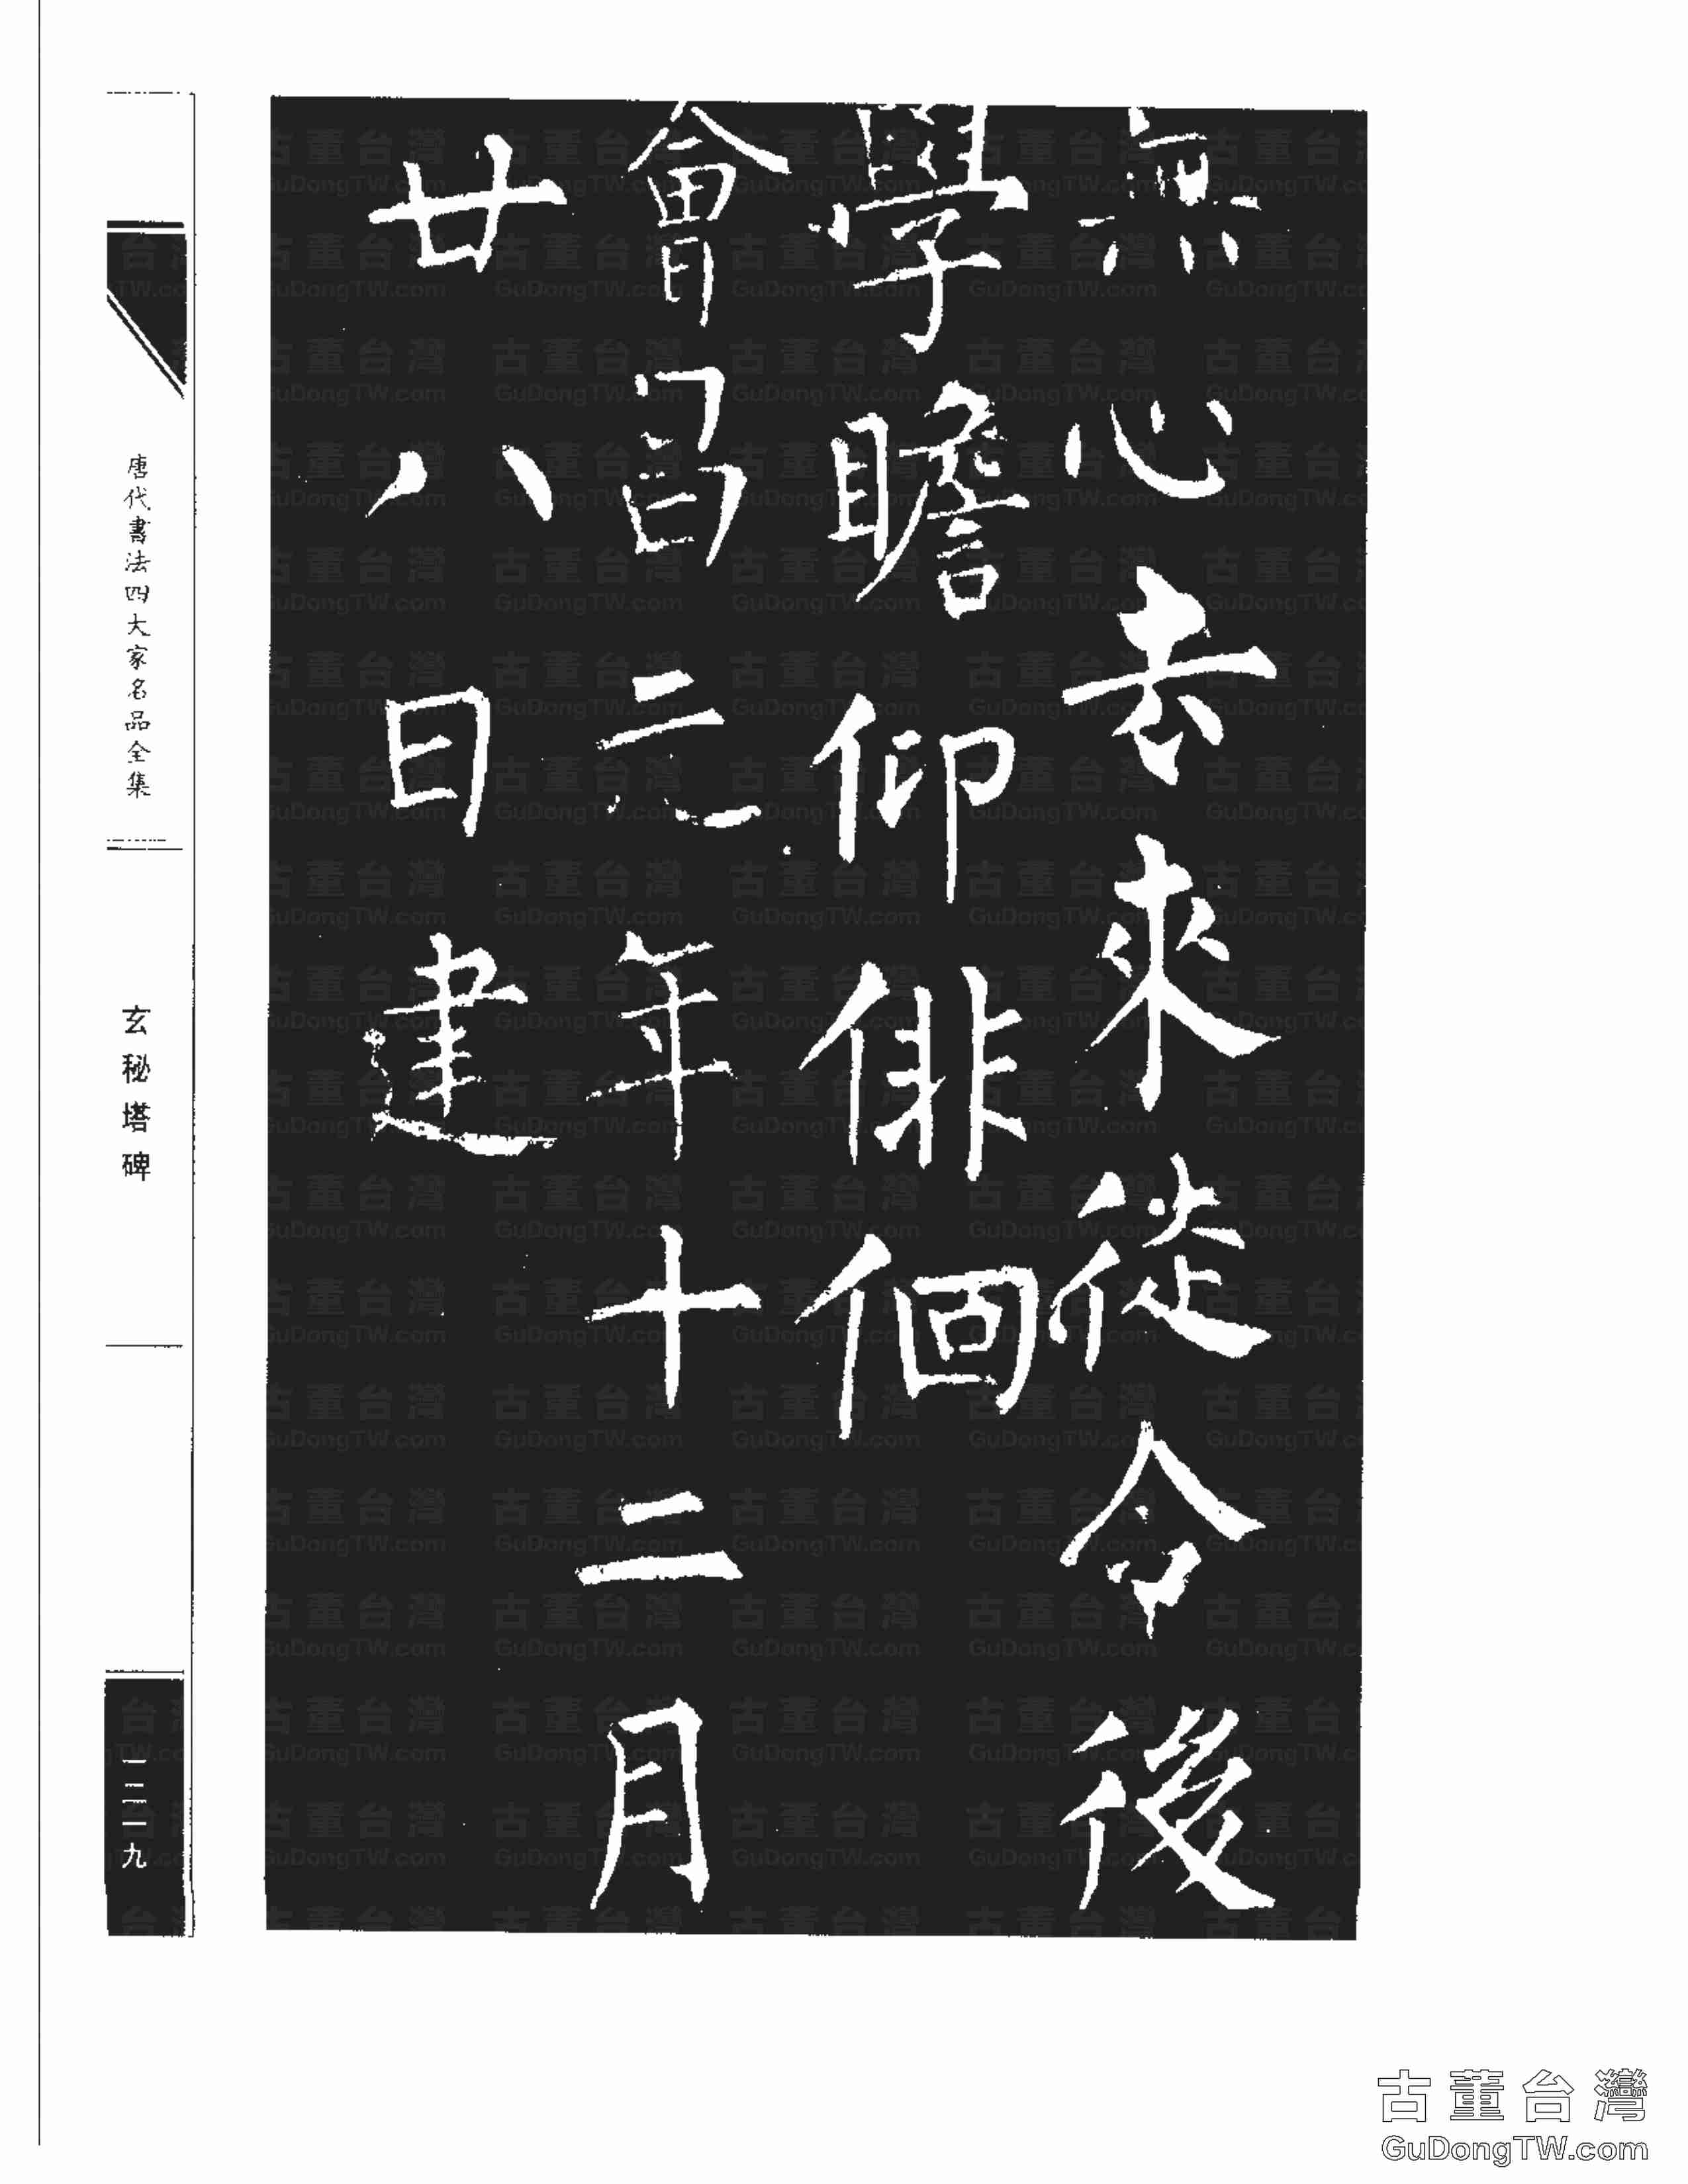 無心去來徒令後
學瞻仰俳佪
會昌元年十二月
廿八日建
唐代書法四大家名品全集
玄秘塔碑
古董台灣
GuDongTW.com